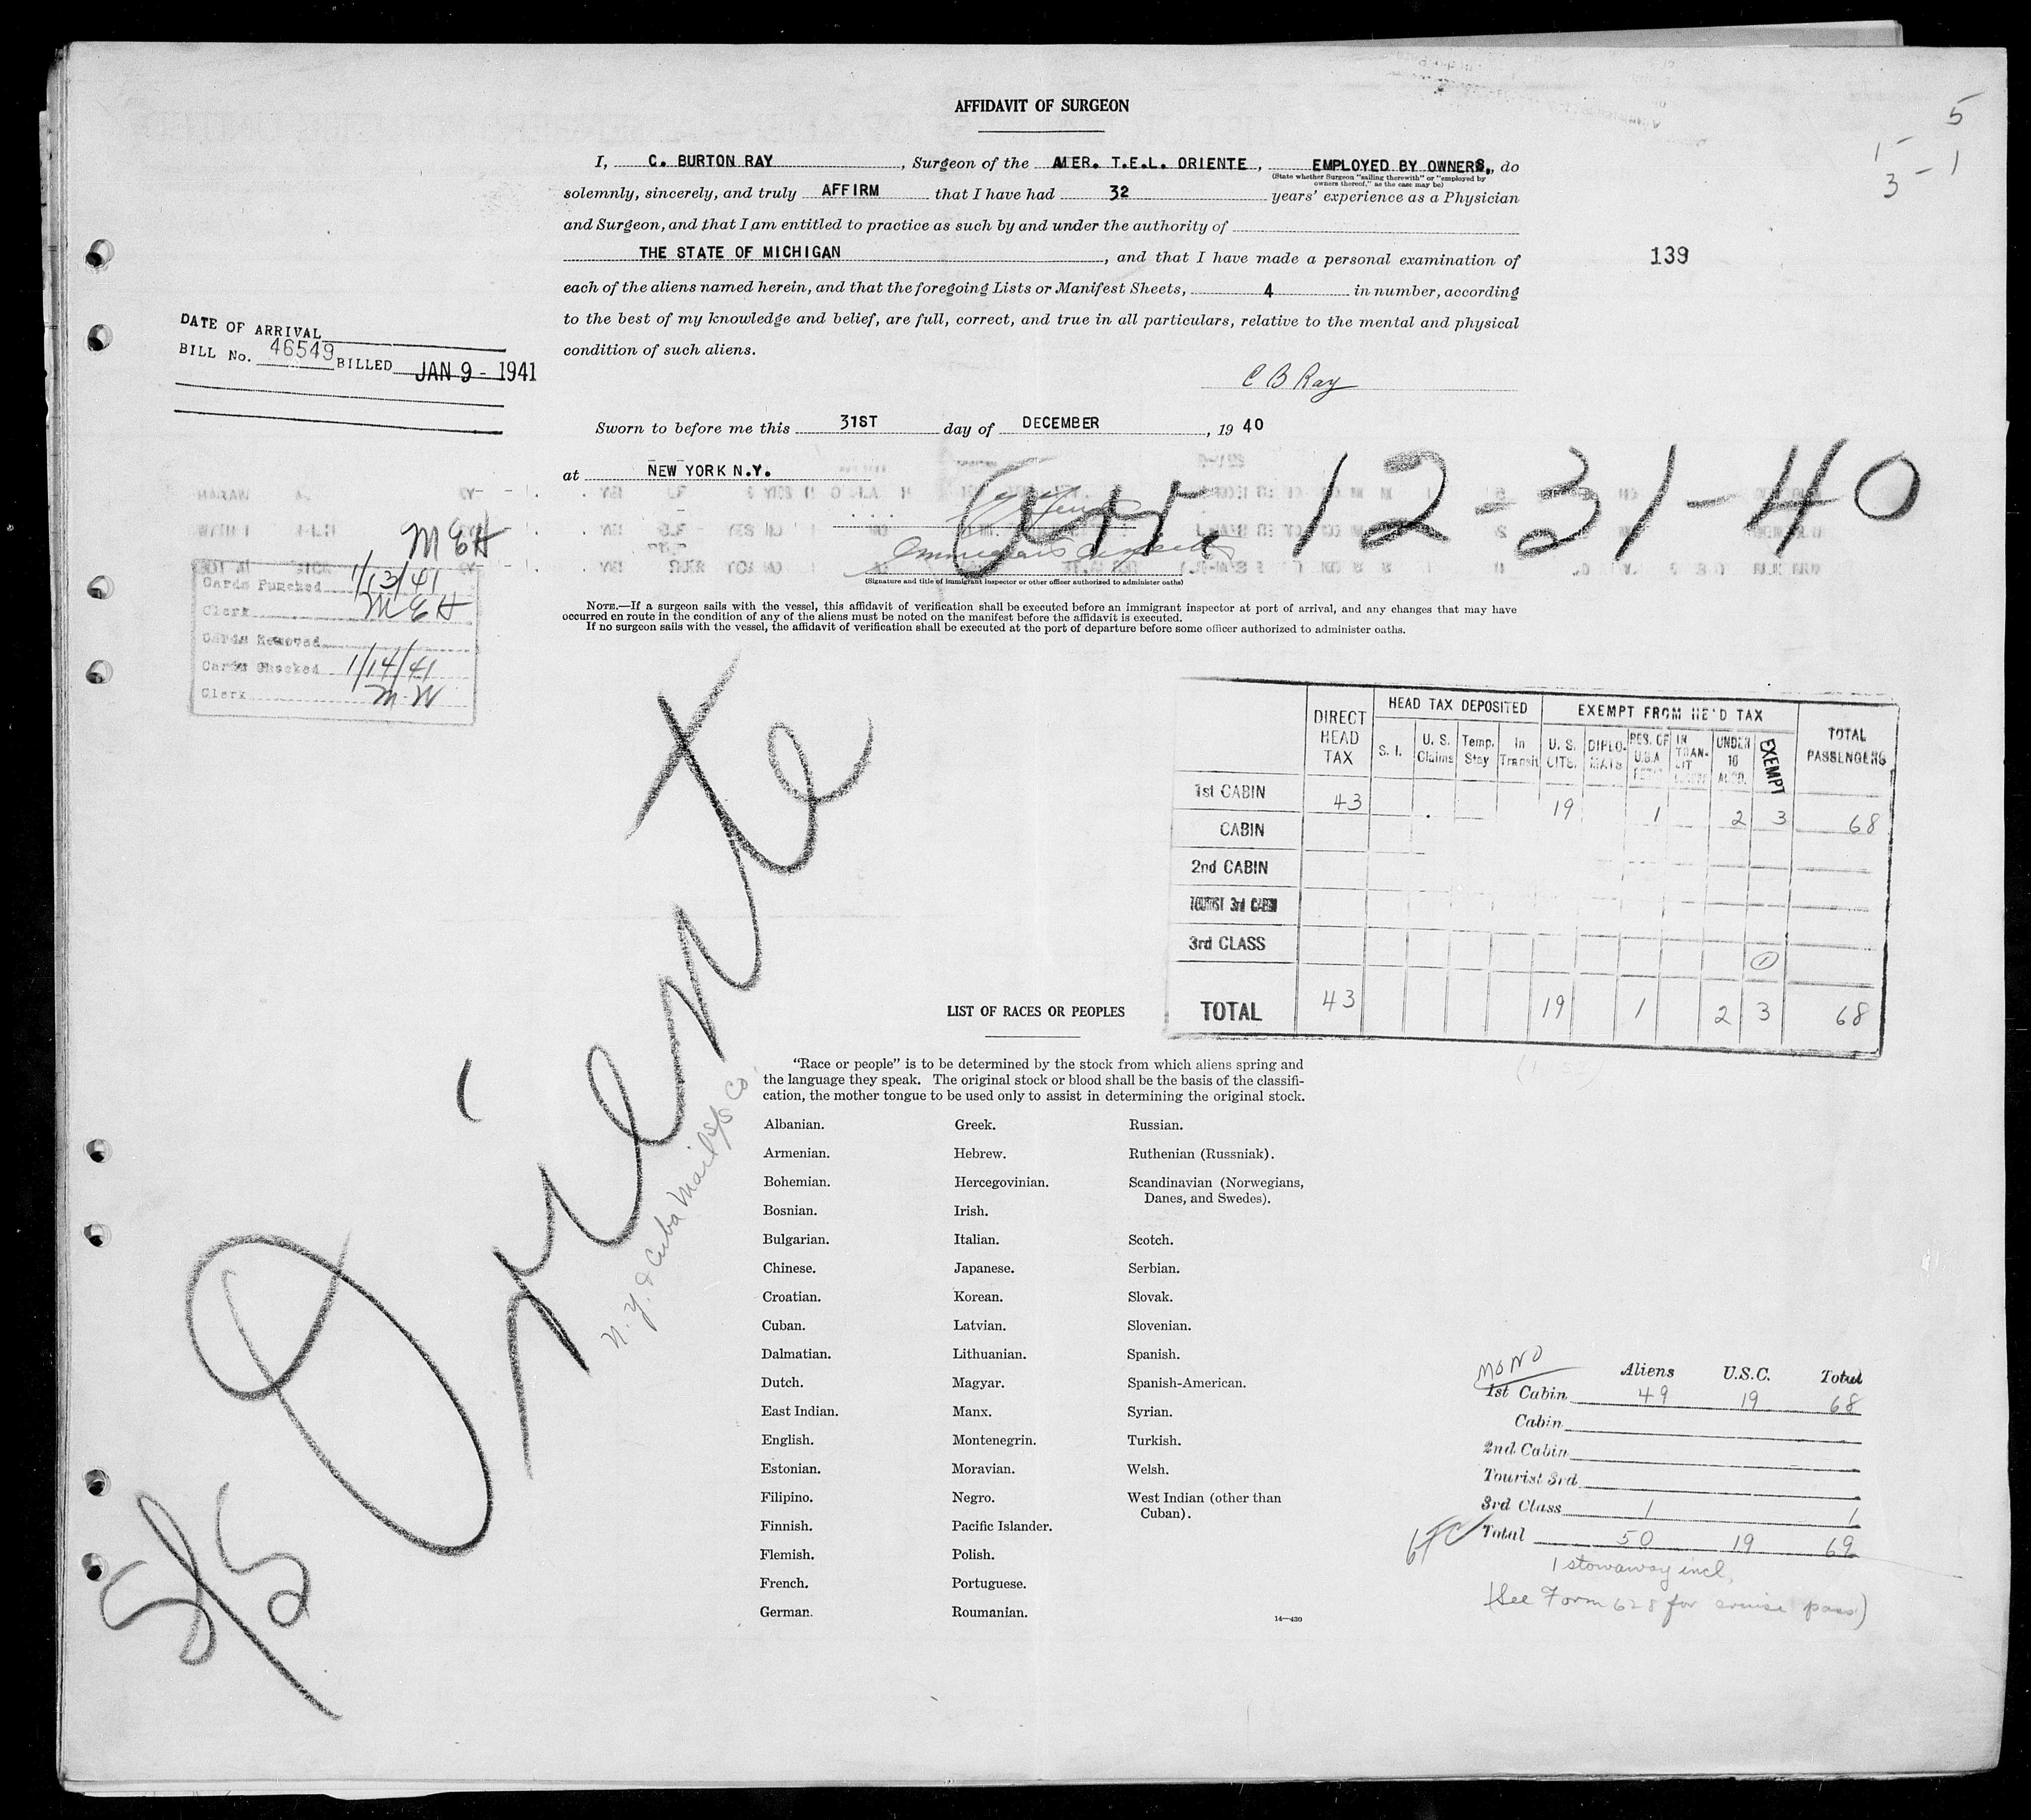 AFFIDAVIT OF SURGEON
I, C. BURTON RAY, Surgeon of the AMER. T.E.L. ORIENTE, EMPLOYED BY OWNERS, do
(State whether Surgeon "sailing therewith" or "employed by owners thereof," as the case may be)
solemnly, sincerely, and truly AFFIRM that I have had 32 years' experience as a Physician
and Surgeon, and that I am entitled to practice as such by and under the authority of
THE STATE OF MICHIGAN, and that I have made a personal examination of
each of the aliens named herein, and that the foregoing Lists or Manifest Sheets, 4 in number, according
to the best of my knowledge and belief, are full, correct, and true in all particulars, relative to the mental and physical
condition of such aliens.
C B Ray
Sworn to before me this 31ST day of DECEMBER, 19 40
at NEW YORK N.Y.
5
1 - 1
3 -
139
DATE OF ARRIVAL
BILL No. 46549 BILLED JAN 9 - 1941
Arr. 12-31-40
(Signature and title of immigrant inspector or other officer authorized to administer oaths)
NOTE.—If a surgeon sails with the vessel, this affidavit of verification shall be executed before an immigrant inspector at port of arrival, and any changes that may have
occurred en route in the condition of any of the aliens must be noted on the manifest before the affidavit is executed.
If no surgeon sails with the vessel, the affidavit of verification shall be executed at the port of departure before some officer authorized to administer oaths.
MEH
Cards Punched 1/13/41
Clerk MEH
Cards Removed
Cards Checked 1/14/41
Clerk M.W
DIRECT HEAD TAX
HEAD TAX DEPOSITED
S. I. U. S. Claims Temp. Stay In Transit
EXEMPT FROM HEAD TAX
U. S. CITS. DIPLOMATS RES. OF U.S.A. IN TRANSIT UNDER 16 EXEMPT
TOTAL PASSENGERS
1st CABIN 43 19 1 2 3 68
CABIN
2nd CABIN
TOURIST 3rd CABIN
3rd CLASS 1
TOTAL 43 19 1 2 3 68
S/S Oriente
N.Y. & Cuba Mail S/S Co.
LIST OF RACES OR PEOPLES
"Race or people" is to be determined by the stock from which aliens spring and
the language they speak. The original stock or blood shall be the basis of the classifi-
cation, the mother tongue to be used only to assist in determining the original stock.
Albanian. Greek. Russian.
Armenian. Hebrew. Ruthenian (Russniak).
Bohemian. Hercegovinian. Scandinavian (Norwegians,
Danes, and Swedes).
Bosnian. Irish.
Bulgarian. Italian. Scotch.
Chinese. Japanese. Serbian.
Croatian. Korean. Slovak.
Cuban. Latvian. Slovenian.
Dalmatian. Lithuanian. Spanish.
Dutch. Magyar. Spanish-American.
East Indian. Manx. Syrian.
English. Montenegrin. Turkish.
Estonian. Moravian. Welsh.
Filipino. Negro. West Indian (other than
Cuban).
Finnish. Pacific Islander.
Flemish. Polish.
French. Portuguese.
German. Roumanian.
14—430
MONO
Aliens U.S.C. Total
1st Cabin 49 19 68
Cabin
2nd Cabin
Tourist 3rd
3rd Class 1 1
Total 50 19 69
1 stowaway incl.
(See Form 628 for cruise pass)